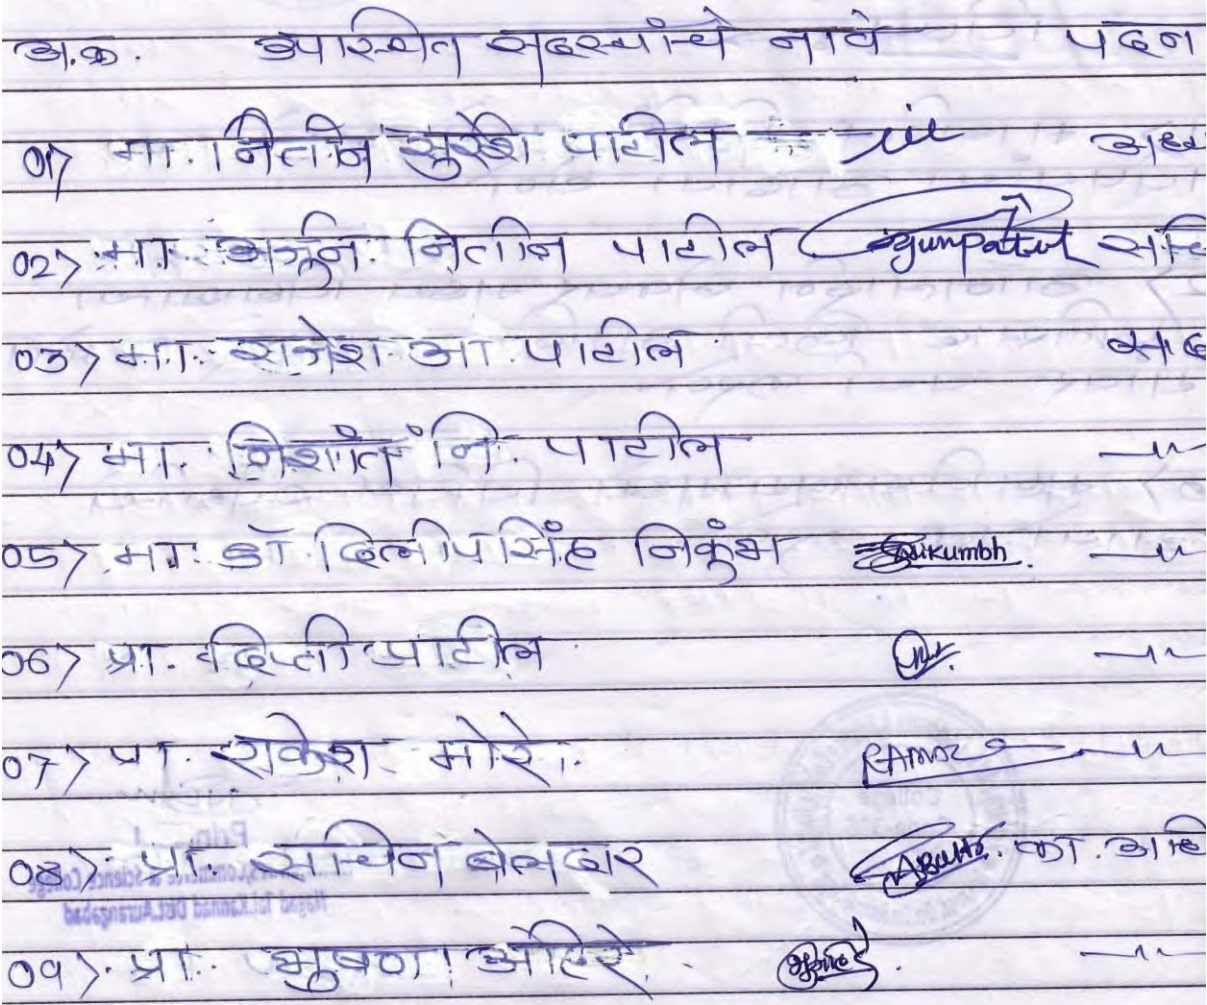 अ.क्र. उपस्थित सदस्यांचे नावे पदन
01> मा. नितीन सुरेश पाटील अध्य
02> मा. अर्जुन नितीन पाटील सचि
03> मा. राजेश आ. पाटील सद
04> मा. निशांत नि. पाटील —"—
05> मा. डॉ. दिलीपसिंह निकुंभ Nikumbh —"—
06> प्रा. दिप्ती पाटील —"—
07> प्रा. राकेश मोरे. —"—
08> प्रा. सचिन बेलदार का. अधि
09> प्रा. भुषण अहिरे. —"—